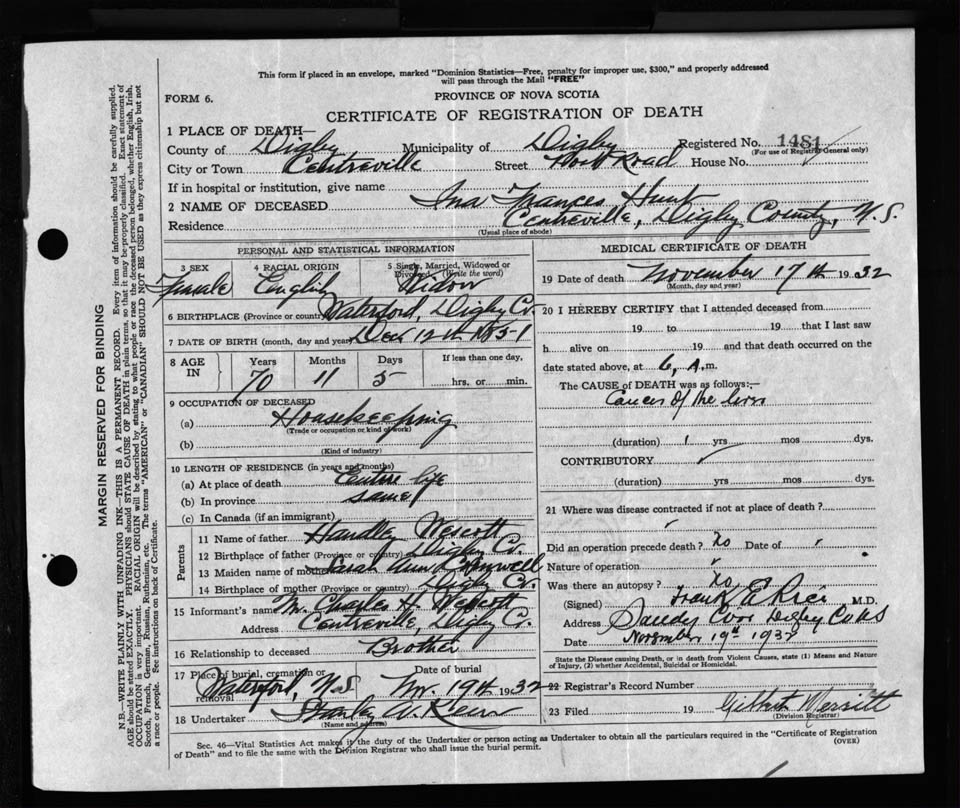 This form if placed in an envelope, marked "Dominion Statistics—Free, penalty for improper use, $300," and properly addressed
will pass through the Mail "FREE"
FORM 6.
PROVINCE OF NOVA SCOTIA
CERTIFICATE OF REGISTRATION OF DEATH
1 PLACE OF DEATH—
County of Digby Municipality of Digby Registered No. 1481
(For use of Registrar General only)
City or Town Centreville Street Road House No.
If in hospital or institution, give name
2 NAME OF DECEASED Ina Frances Hunt
Residence Centreville, Digby County, N.S.
(Usual place of abode)
PERSONAL AND STATISTICAL INFORMATION
3 SEX 4 RACIAL ORIGIN 5 Single, Married, Widowed or
Divorced (Write the word)
Female English Widow
6 BIRTHPLACE (Province or country) Waterford, Digby Co.
7 DATE OF BIRTH (month, day and year) Dec 12th
8 AGE IN Years Months Days If less than one day,
70 11 5 hrs. or min.
9 OCCUPATION OF DECEASED
(a) Housekeeping
(Trade or occupation or kind of work)
(b)
(Kind of industry)
10 LENGTH OF RESIDENCE (in years and months)
(a) At place of death Entire life
(b) In province same
(c) In Canada (if an immigrant)
Parents
11 Name of father Handley Wescott
12 Birthplace of father (Province or country) Digby Co.
13 Maiden name of mother Sarah Ann Cromwell
14 Birthplace of mother (Province or country) Digby Co.
15 Informant's name Mr. Charles H. Wescott
Address Centreville, Digby Co.
16 Relationship to deceased Brother
17 Place of burial, cremation or removal Date of burial
Waterford, N.S. Nov. 19th 1932
18 Undertaker
(Name and address)
MEDICAL CERTIFICATE OF DEATH
19 Date of death November 17th 1932
(Month, day and year)
20 I HEREBY CERTIFY that I attended deceased from
19 to 19 that I last saw
h alive on 19 and that death occurred on the
date stated above, at 6, A.m.
The CAUSE of DEATH was as follows:—
Cancer of the liver
(duration) 1 yrs mos dys.
CONTRIBUTORY
(duration) yrs mos dys.
21 Where was disease contracted if not at place of death?
Did an operation precede death? No Date of
Nature of operation
Was there an autopsy? No
(Signed) Frank E Rice M.D.
Address Sandy Cove Digby Co NS
Date November 19th 1932
State the Disease causing Death, or in death from Violent Causes, state (1) Means and Nature
of Injury, (2) whether Accidental, Suicidal or Homicidal.
22 Registrar's Record Number
23 Filed 19 Gilbert Merritt
(Division Registrar)
Sec. 46—Vital Statistics Act makes it the duty of the Undertaker or person acting as Undertaker to obtain all the particulars required in the "Certificate of Registration
of Death" and to file the same with the Division Registrar who shall issue the burial permit.
(OVER)
MARGIN RESERVED FOR BINDING
N.B.—WRITE PLAINLY WITH UNFADING INK—THIS IS A PERMANENT RECORD. Every item of information should be carefully supplied.
AGE should be stated EXACTLY. PHYSICIANS should STATE CAUSE OF DEATH in plain terms, so that it may be properly classified. Exact statement of
OCCUPATION is very important. RACIAL ORIGIN will be described by stating to what people or race the deceased person belonged, whether English, Irish,
Scotch, French, German, Russian, Ruthenian, etc. The terms "AMERICAN" or "CANADIAN" SHOULD NOT BE USED as they express citizenship but not
a race or people. See instructions on back of Certificate.